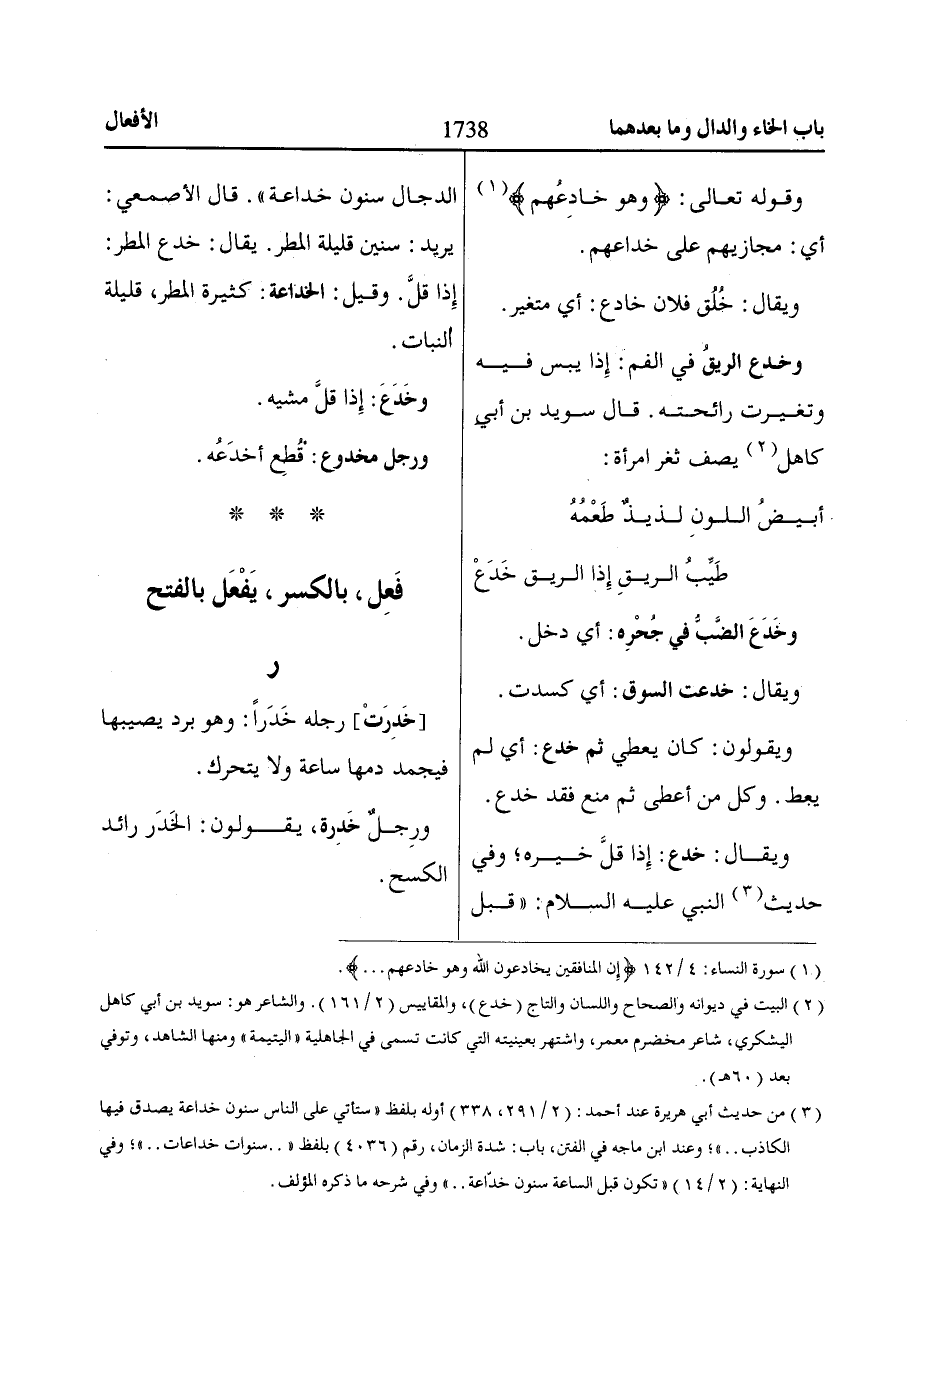 باب الخاء والدال وما بعدهما
1738
الأفعال
وقوله تعالى: ﴿وهو خادِعُهم﴾(١)
أي: مجازيهم على خداعهم.
ويقال: خُلُق فلان خادع: أي متغير.
وخدع الريقُ في الفم: إذا يبس فيه
وتغيرت رائحته. قال سويد بن أبي
كاهل(٢) يصف ثغر امرأة:
أبيضُ اللونِ لذيذٌ طَعْمُهُ
طَيِّبُ الريقِ إذا الريق خَدَعْ
وخَدَعَ الضَّبُّ في جُحْرِه: أي دخل.
ويقال: خدعت السوق: أي كسدت.
ويقولون: كان يعطي ثم خدع: أي لم
يعط. وكل من أعطى ثم منع فقد خدع.
ويقال: خدع: إذا قلَّ خيره؛ وفي
حديث(٣) النبي عليه السلام: «قبل
الدجال سنون خداعة». قال الأصمعي:
يريد: سنين قليلة المطر. يقال: خدع المطر:
إذا قلَّ. وقيل: الخداعة: كثيرة المطر، قليلة
النبات.
وخَدَعَ: إذا قلَّ مشيه.
ورجل مخدوع: قُطِع أخدَعُه.
* * *
فَعِل، بالكسر، يَفْعَل بالفتح
ر
[خَدِرَتْ] رجله خَدَراً: وهو برد يصيبها
فيجمد دمها ساعة ولا يتحرك.
ورجلٌ خَدِرة، يقولون: الخَدَر رائد
الكسح.
(١) سورة النساء: ٤/١٤٢ ﴿إن المنافقين يخادعون الله وهو خادعهم...﴾.
(٢) البيت في ديوانه والصحاح واللسان والتاج (خدع)، والمقاييس (٢/١٦١). والشاعر هو: سويد بن أبي كاهل
اليشكري، شاعر مخضرم معمر، واشتهر بعينيته التي كانت تسمى في الجاهلية «اليتيمة» ومنها الشاهد، وتوفي
بعد (٦٠هـ).
(٣) من حديث أبي هريرة عند أحمد: (٢/٢٩١، ٣٣٨) أوله بلفظ «ستأتي على الناس سنون خداعة يصدق فيها
الكاذب..»؛ وعند ابن ماجه في الفتن، باب: شدة الزمان، رقم (٤٠٣٦) بلفظ «..سنوات خداعات..»؛ وفي
النهاية: (٢/١٤) «تكون قبل الساعة سنون خدّاعة..» وفي شرحه ما ذكره المؤلف.